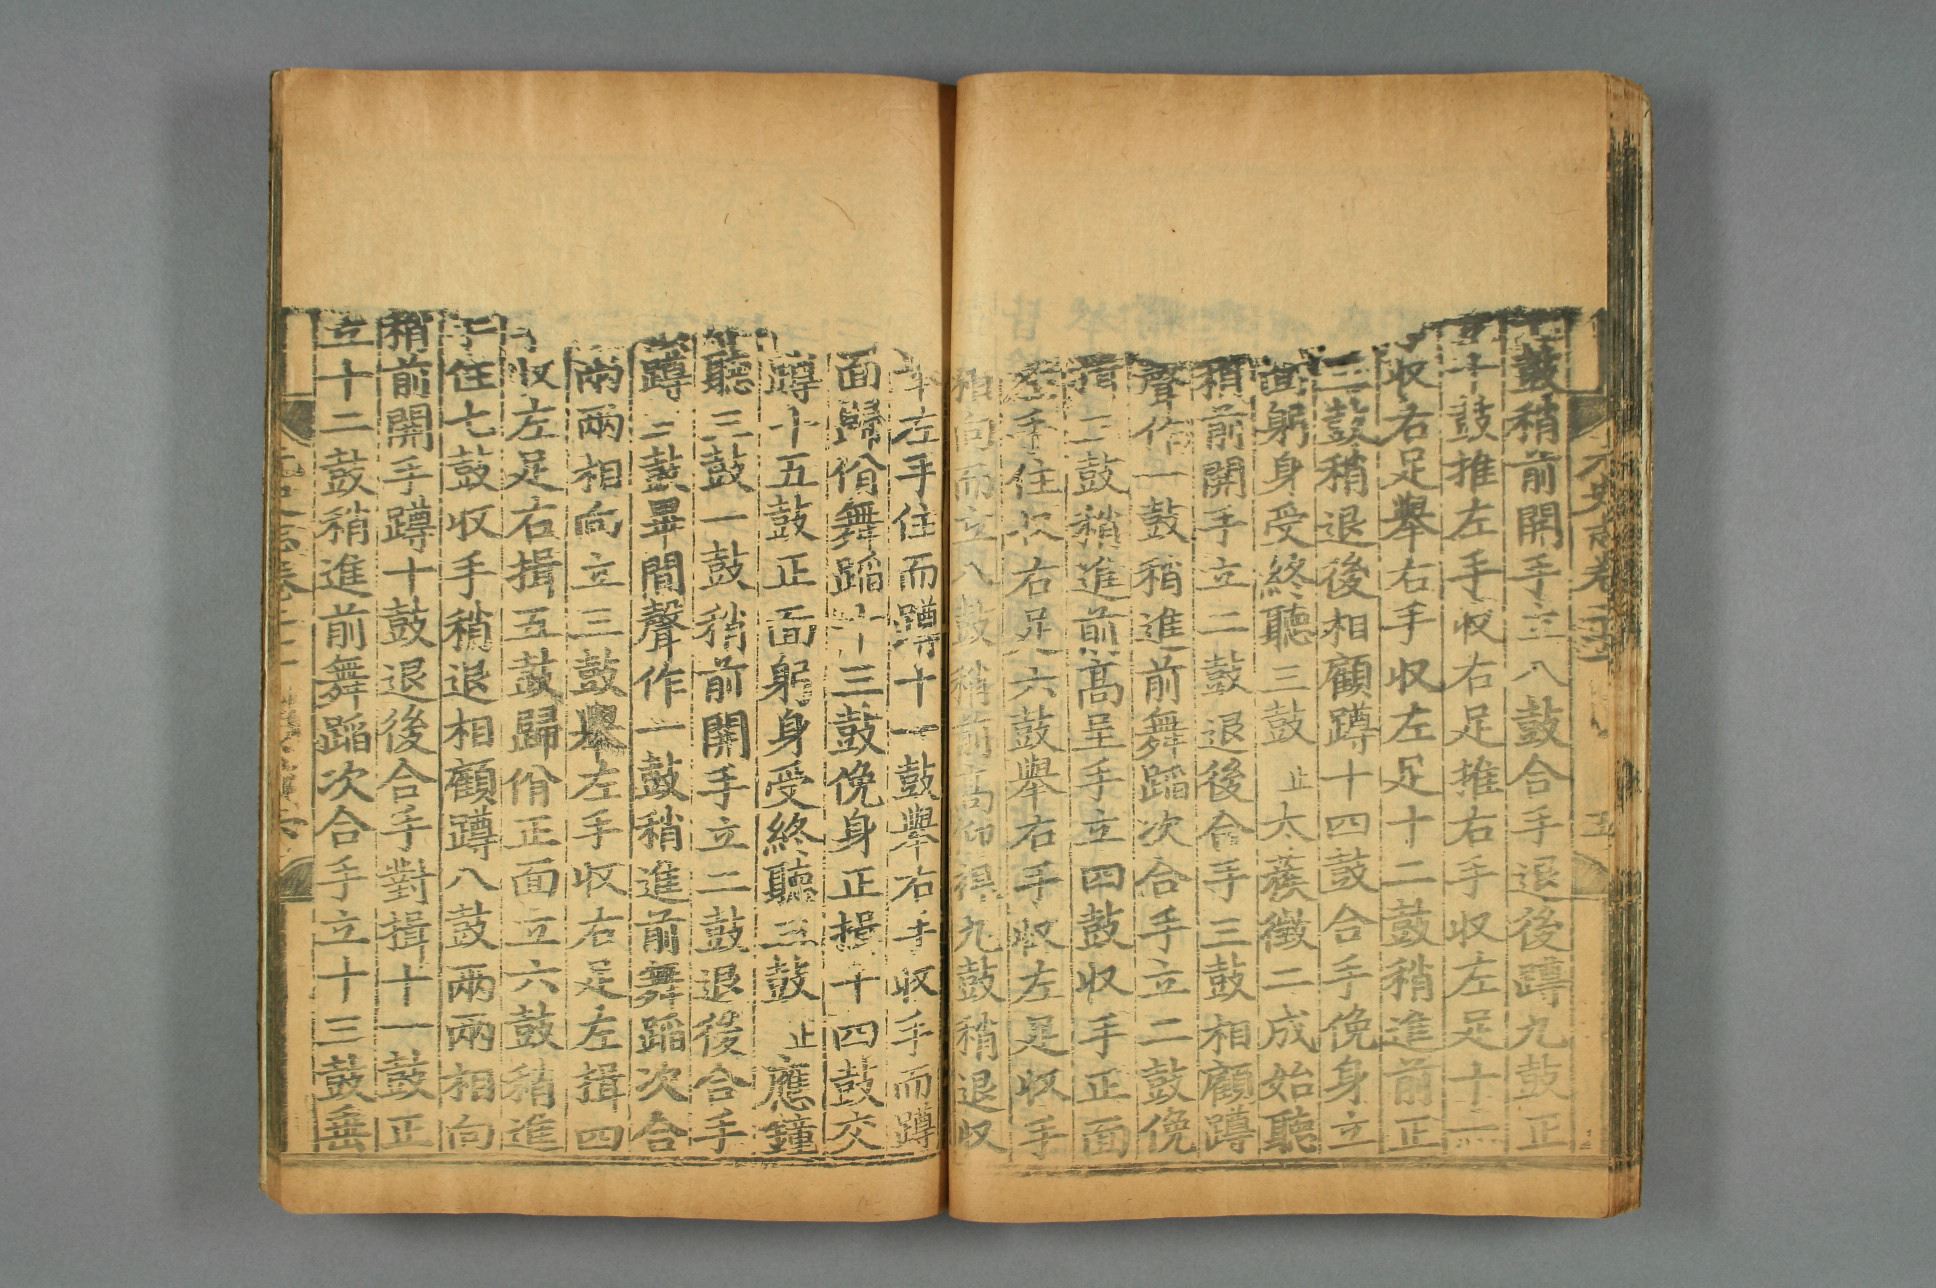 鼓稍前開手立八鼓合手退後蹲九鼓正
十鼓推左手收右足推右手收左足十一
收右足舉右手收左足十二鼓稍進前正
三鼓稍退後相顧蹲十四鼓合手俛身立
躬身受終聽三鼓止太蔟徵二成始聽
稍前開手立二鼓退後合手三鼓相顧蹲
聲作一鼓稍進前舞蹈次合手立二鼓俛
鼓稍進前高呈手立四鼓收手正面
手住收右足六鼓舉右手收左足收手
相向而立八鼓稍前高仰視九鼓稍退收
左手住而蹲十一鼓舉右手收手而蹲
面歸佾舞蹈十三鼓俛身正揖十四鼓交
蹲十五鼓正面躬身受終聽三鼓止應鐘
聽三鼓一鼓稍前開手立二鼓退後合手
蹲三鼓畢間聲作一鼓稍進前舞蹈次合
兩兩相向立三鼓舉左手收右足左揖四
收左足右揖五鼓歸佾正面立六鼓稍進
手住七鼓收手稍退相顧蹲八鼓兩兩相向
稍前開手蹲十鼓退後合手對揖十一鼓正
立十二鼓稍進前舞蹈次合手立十三鼓垂